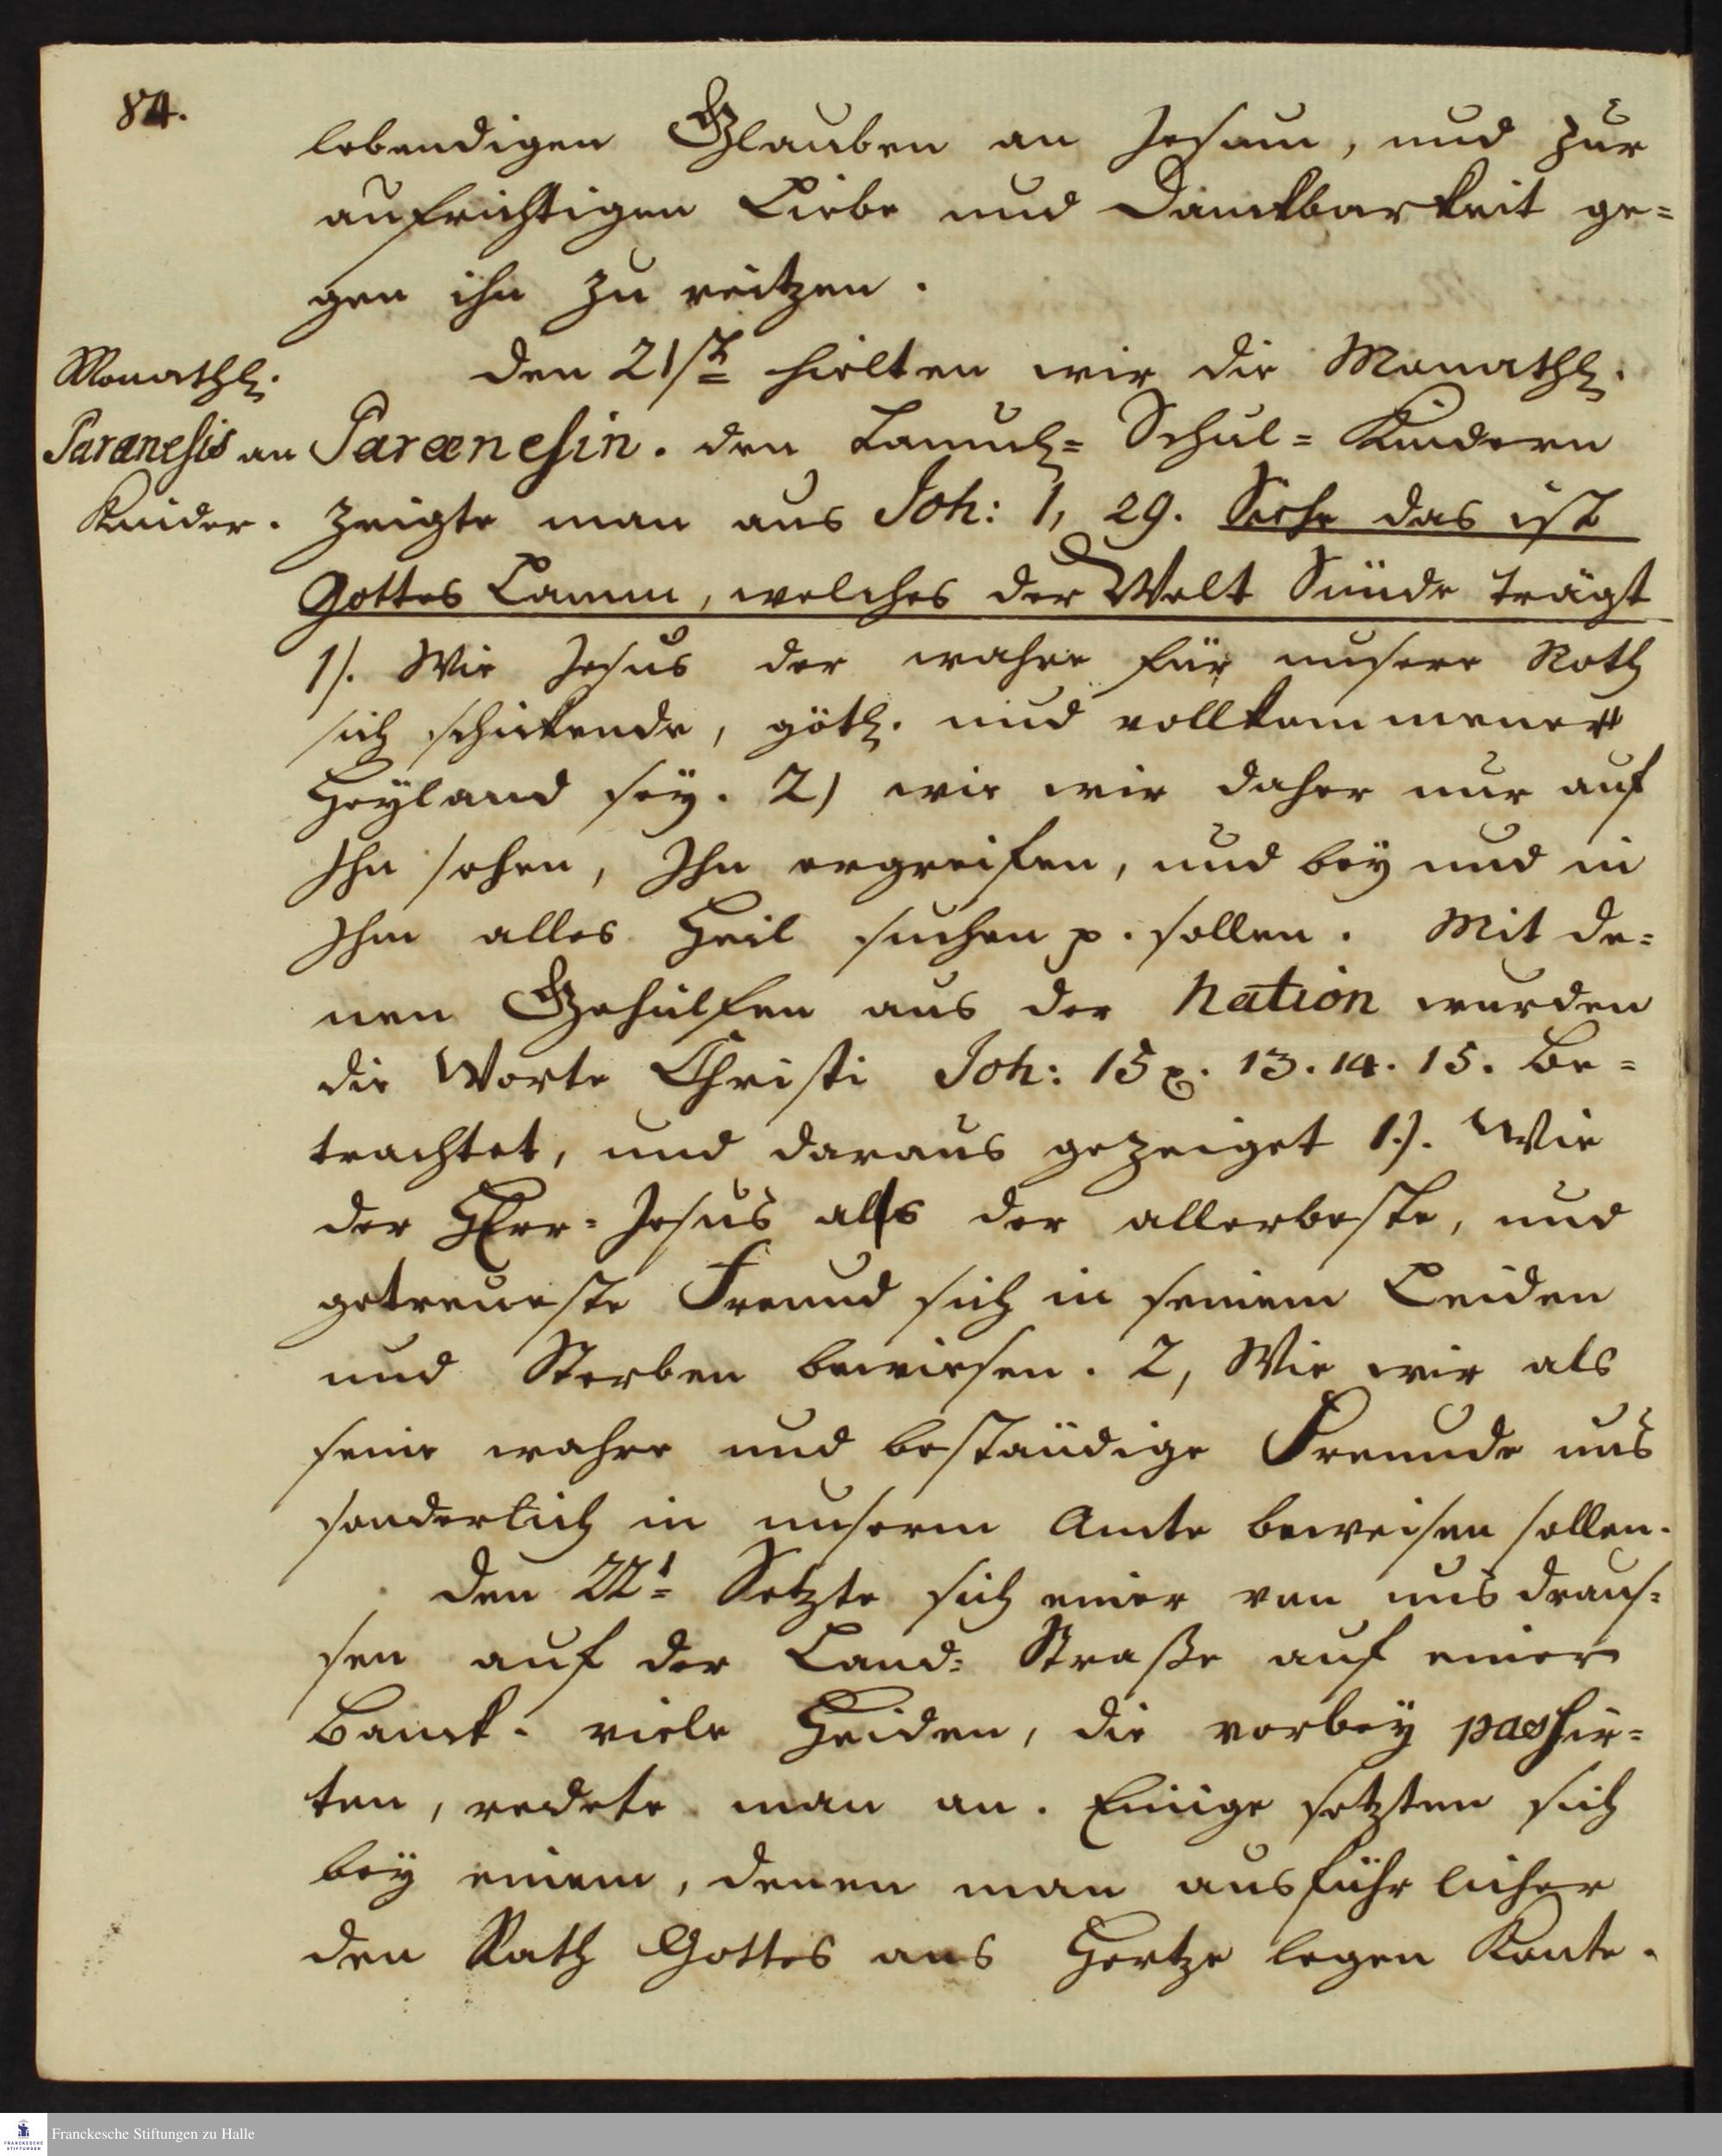 84.
lebendigen Glauben an Jesum, und zur
aufrichtigen Liebe und Danckbarkeit ge=
gen ihn zu reitzen.
Monathl.
Paranesis an
Kinder.
den 21st hielten wir die Monathl.
Parænesin. den Tamul= Schul= Kindern
zeigte man aus Joh: 1, 29. Siehe das ist
Gottes Lamm, welches der Welt Sünde trägt
1). Wie Jesus der wahre für unsere Noth
sich schickende, götl. und vollkommener
Heyland sey. 2) wie wir daher nur auf
Ihn sehen, Ihn ergreifen, und bey und in
Ihm alles Heil suchen p. sollen. Mit de=
nen Gehülfen aus der Nation wurden
die Worte Christi Joh: 15 v. 13. 14. 15. be=
trachtet, und daraus gezeiget 1.). Wie
der HErr= Jesus als der allerbeste, und
getreueste Freund sich in seinem Leiden
und Sterben bewiesen. 2, Wie wir als
seine wahre und beständige Freunde uns
sonderlich in unserm Amte beweisen sollen.
den 22t= Setzte sich einer von uns draus=
sen auf der Land= Straße auf einer
Banck. viele Heiden, die vorbey passir=
ten, redete man an. Einige setzten sich
bey einem, denen man ausführlicher
den Rath Gottes ans Hertze legen konte.
Franckesche Stiftungen zu Halle
FRANCKESCHE
STIFTUNGEN